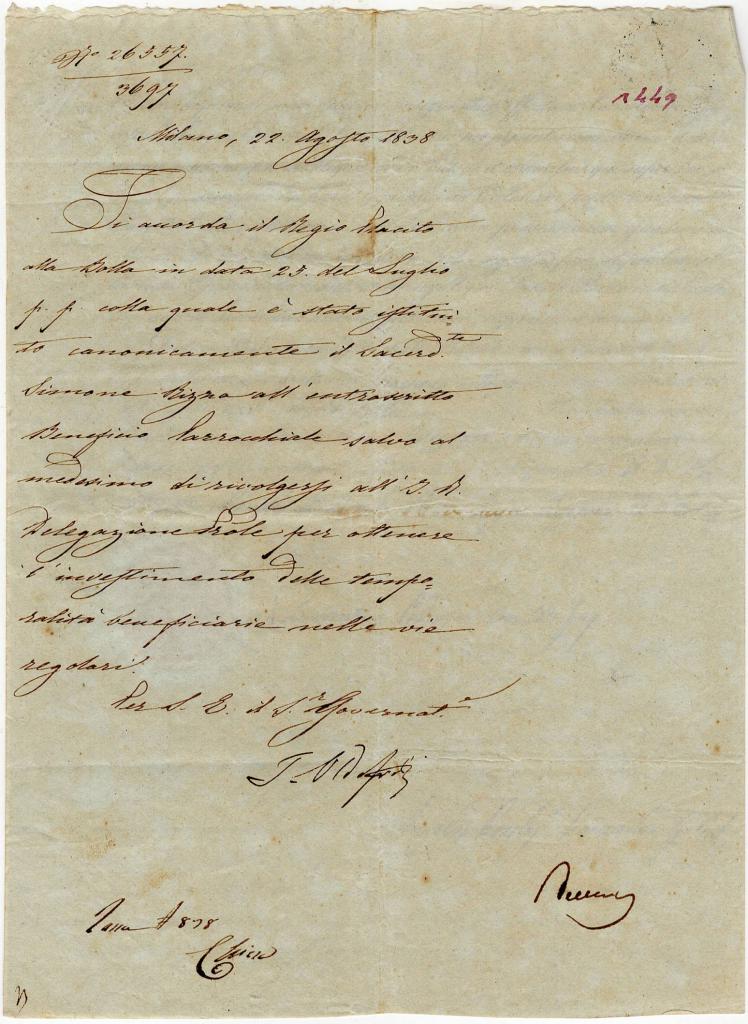 N.o 26557.
3697
1449
Milano, 22. Agosto 1838
Si accorda il Regio Placito
alla Bolla in data 25. del Luglio
p. p. colla quale è stato istitui
to canonicamente il Sacerd.te
Simone Rizza all' entroscritto
Beneficio Parrocchiale salvo al
medesimo di rivolgersi all' I. R.
Delegazione Prole per ottenere
l' investimento delle tempo=
ralità beneficiarie nelle vie
regolari.
Per S. E. il S.r Governat.e
Tassa